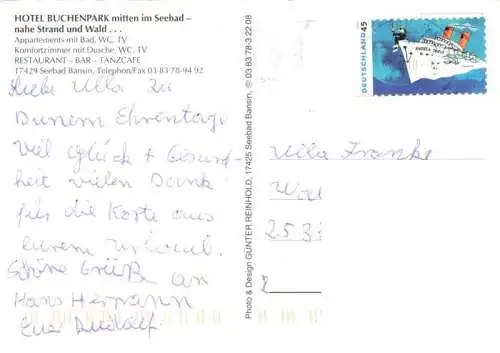 HOTEL BUCHENPARK mitten im Seebad –
nahe Strand und Wald . . .
Appartements mit Bad, WC, TV
Komfortzimmer mit Dusche, WC, TV
RESTAURANT – BAR – TANZCAFE
17429 Seebad Bansin, Telephon/Fax 03 83 78-94 92
Liebe Ulla zu
Deinem Ehrentage
viel Glück + Gesund-
heit vielen Dank
für die Karte aus
eurem Urlaub.
Schöne Grüße an
Hans Hermann
Euer Rudolf
Photo & Design GÜNTER REINHOLD, 17425 Seebad Bansin, ✆ 03 83 78-3 22 08
DEUTSCHLAND 45
Ulla Franke
253